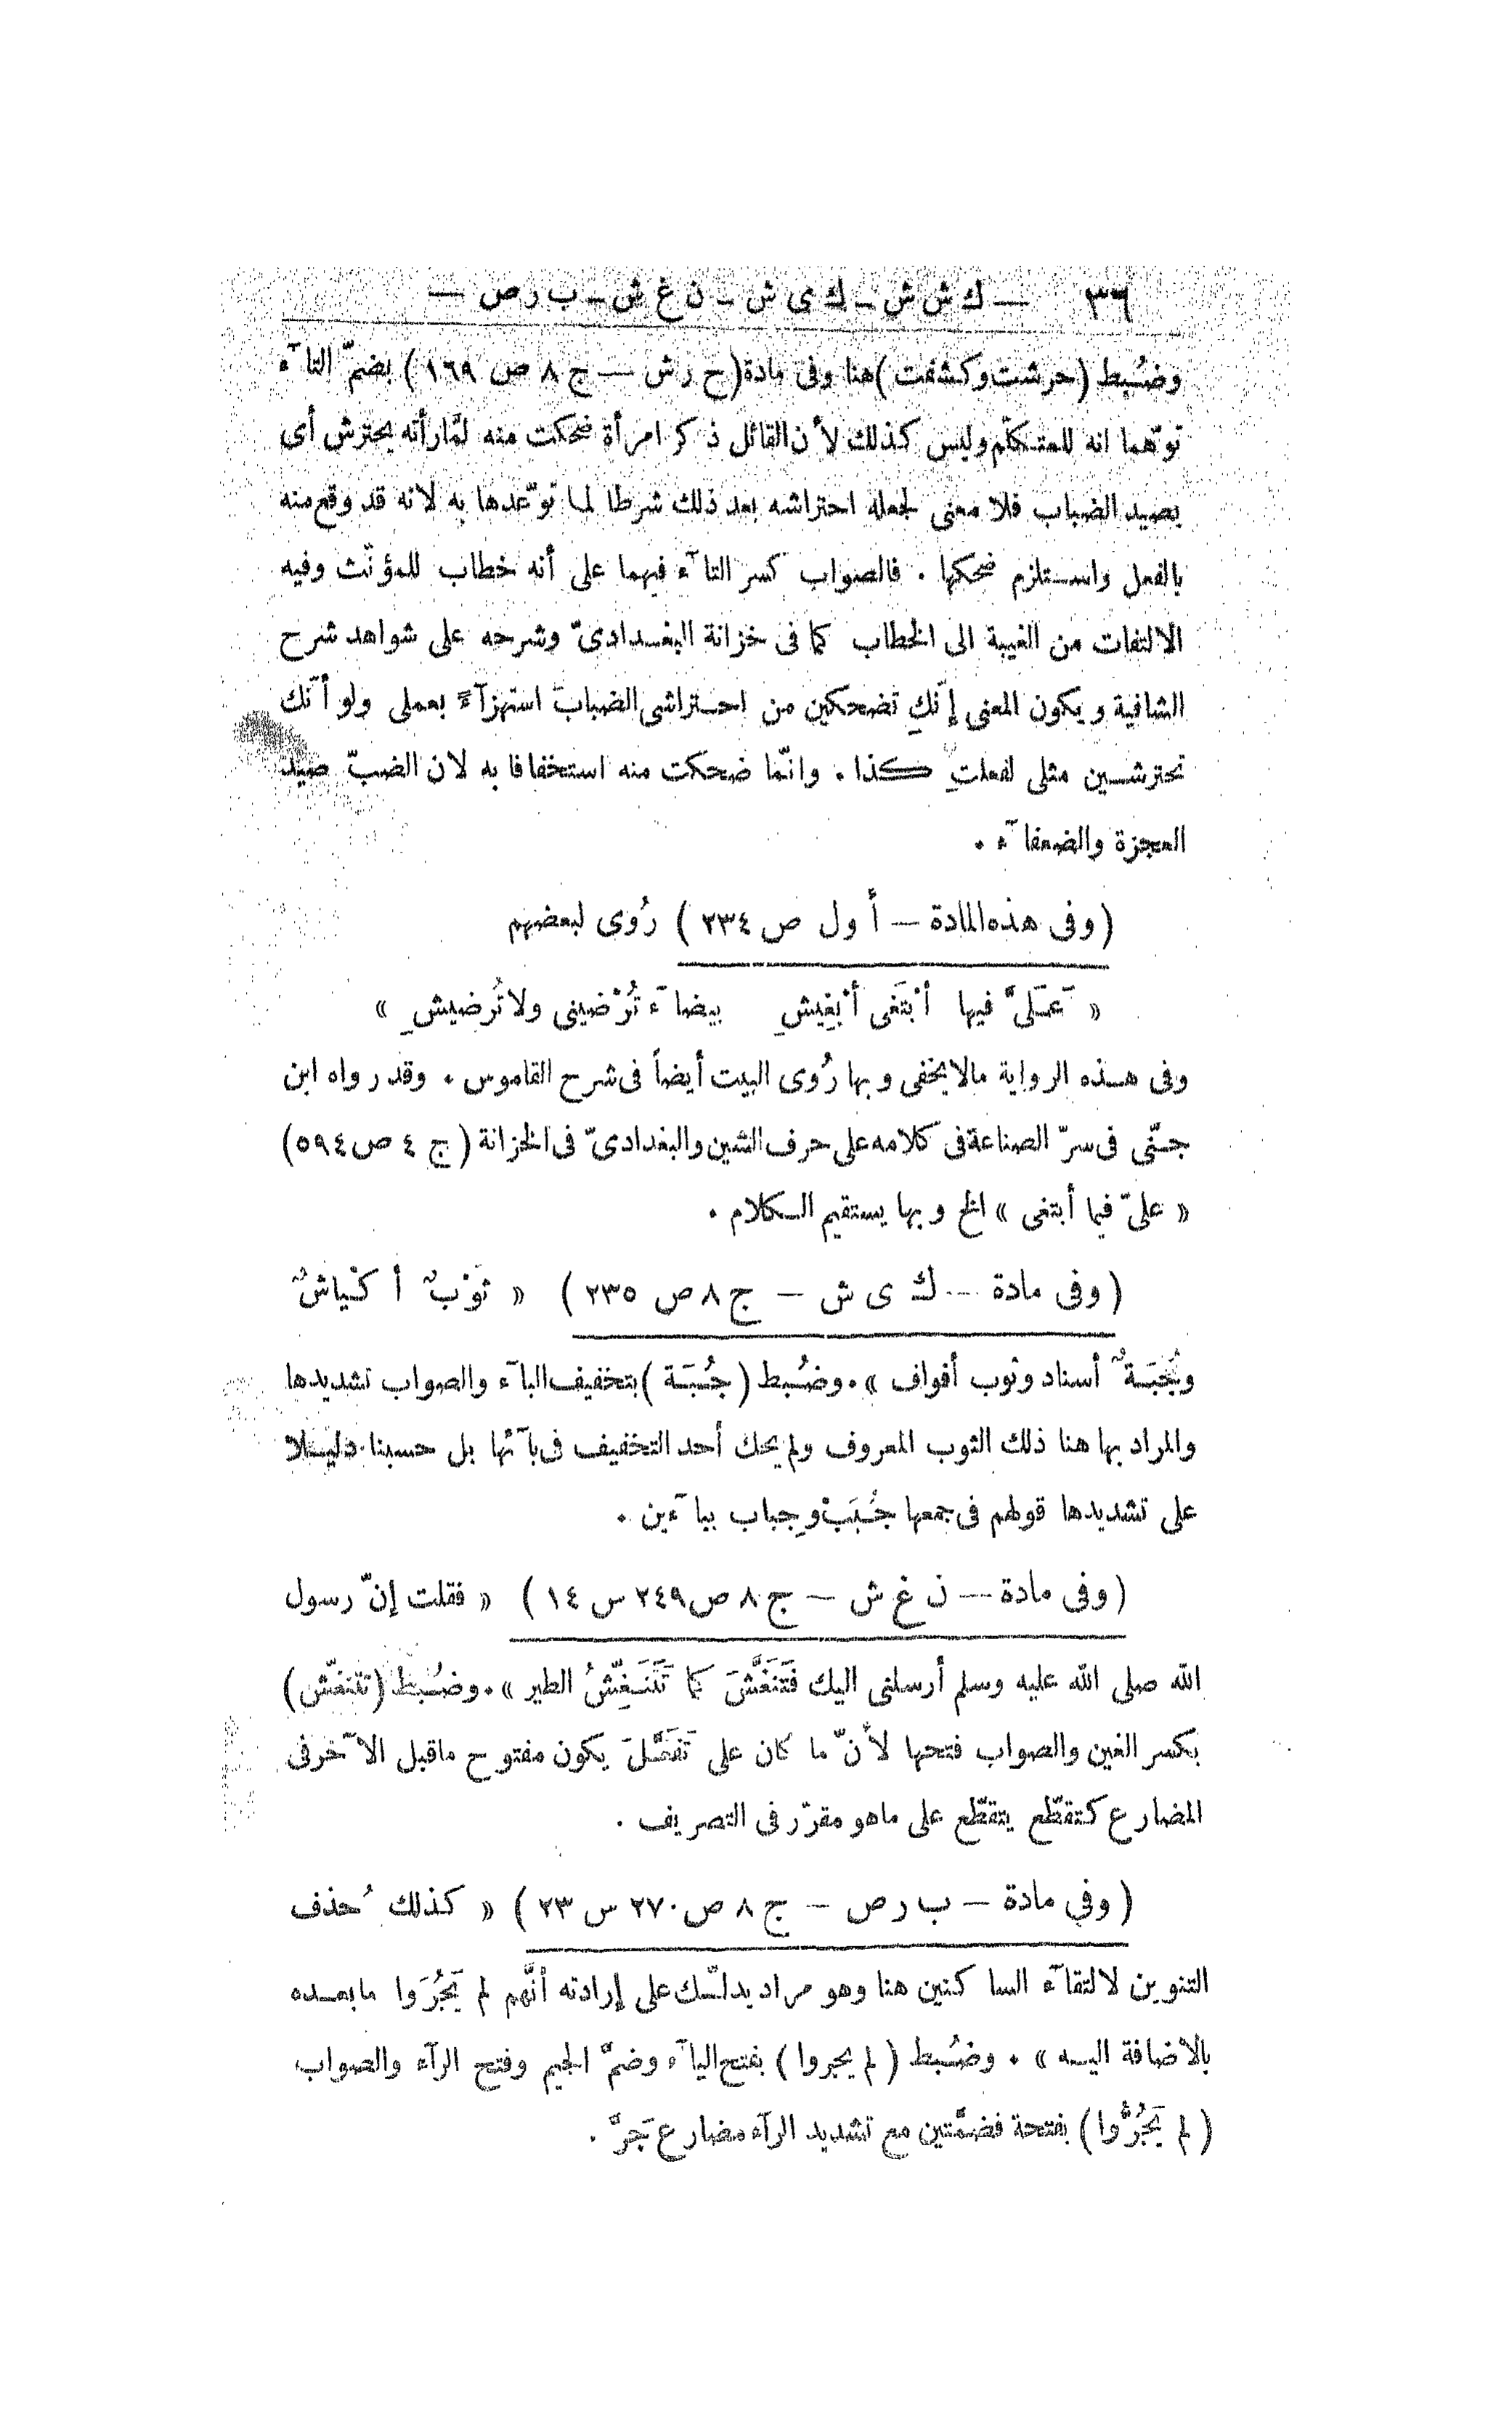 ٣٦ — ك ش ش — ك ى ش — ن غ ش — ب ر ص —
وضُبط (حرشت وكشفت) هنا وفى مادة (ح ر ش — ج ٨ ص ١٦٩) بضمّ التآء
توّهما انه للمتكلّم وليس كذلك لأن القائل ذكر امرأة ضحكت منه لمّا رأته يحترش أى
يصيد الضباب فلا معنى لجعله احتراشه بعد ذلك شرطا لما توّعدها به لانه قد وقع منه
بالفعل واستلزم ضحكها . فالصواب كسر التآء فيهما على أنه خطاب للمؤنّث وفيه
الالتفات من الغيبة الى الخطاب كما فى خزانة البغدادىّ وشرحه على شواهد شرح
الشافية ويكون المعنى إنّكِ تضحكين من احتراشى الضبابَ استهزآءً بعملى ولو أنّك
تحترشين مثلى لفعلتِ كذا . وانّما ضحكت منه استخفافا به لان الضبّ صيد
العجزة والضعفآء .
(وفى هذه المادة — أول ص ٢٣٤) رُوى لبعضهم
« عَلىَّ فيها أبْتَغى أبْغِيشِ بيضآء تُرْضينى ولا تُرضيشِ »
وفى هذه الرواية مالا يخفى وبها رُوى البيت أيضاً فى شرح القاموس . وقد رواه ابن
جنّى فى سرّ الصناعة فى كلامه على حرف الشين والبغدادىّ فى الخزانة (ج ٤ ص ٥٩٤)
« علىّ فيما أبتغى » الخ وبها يستقيم الكلام .
(وفى مادة — ك ى ش — ج ٨ ص ٢٣٥) « ثَوْبٌ أكْياشٌ
وجُبَةٌ أسناد وثوب أفواف » . وضُبط (جُبَة) بتخفيف البآء والصواب تشديدها
والمراد بها هنا ذلك الثوب المعروف ولم يحك أحد التخفيف فى بآئها بل حسبنا دليلا
على تشديدها قولهم فى جمعها جُبَبْ وجِباب ببآءين .
(وفى مادة — ن غ ش — ج ٨ ص ٢٤٩ س ١٤) « فقلت إنّ رسول
الله صلى الله عليه وسلم أرسلنى اليك فَتَنَغَّشَ كما تَتَنَغِّشُ الطير » . وضُبط (تتنغّش)
بكسر الغين والصواب فتحها لأنّ ما كان على تَفَعَّلَ يكون مفتوح ماقبل الآخر فى
المضارع كتقطّع يتقطّع على ماهو مقرّر فى التصريف .
(وفي مادة — ب ر ص — ج ٨ ص ٢٧٠ س ٢٣) « كذلك حُذف
التنوين لالتقآء الساكنين هنا وهو مراد يدلّك على إرادته أنَّهم لم يَجُرَوا مابعده
بالاضافة اليه » . وضُبط (لم يجروا) بفتح اليآء وضمّ الجيم وفتح الرآء والصواب
(لم يَجُرُّوا) بفتحة فضمّتين مع تشديد الرآء مضارع جَرَّ .